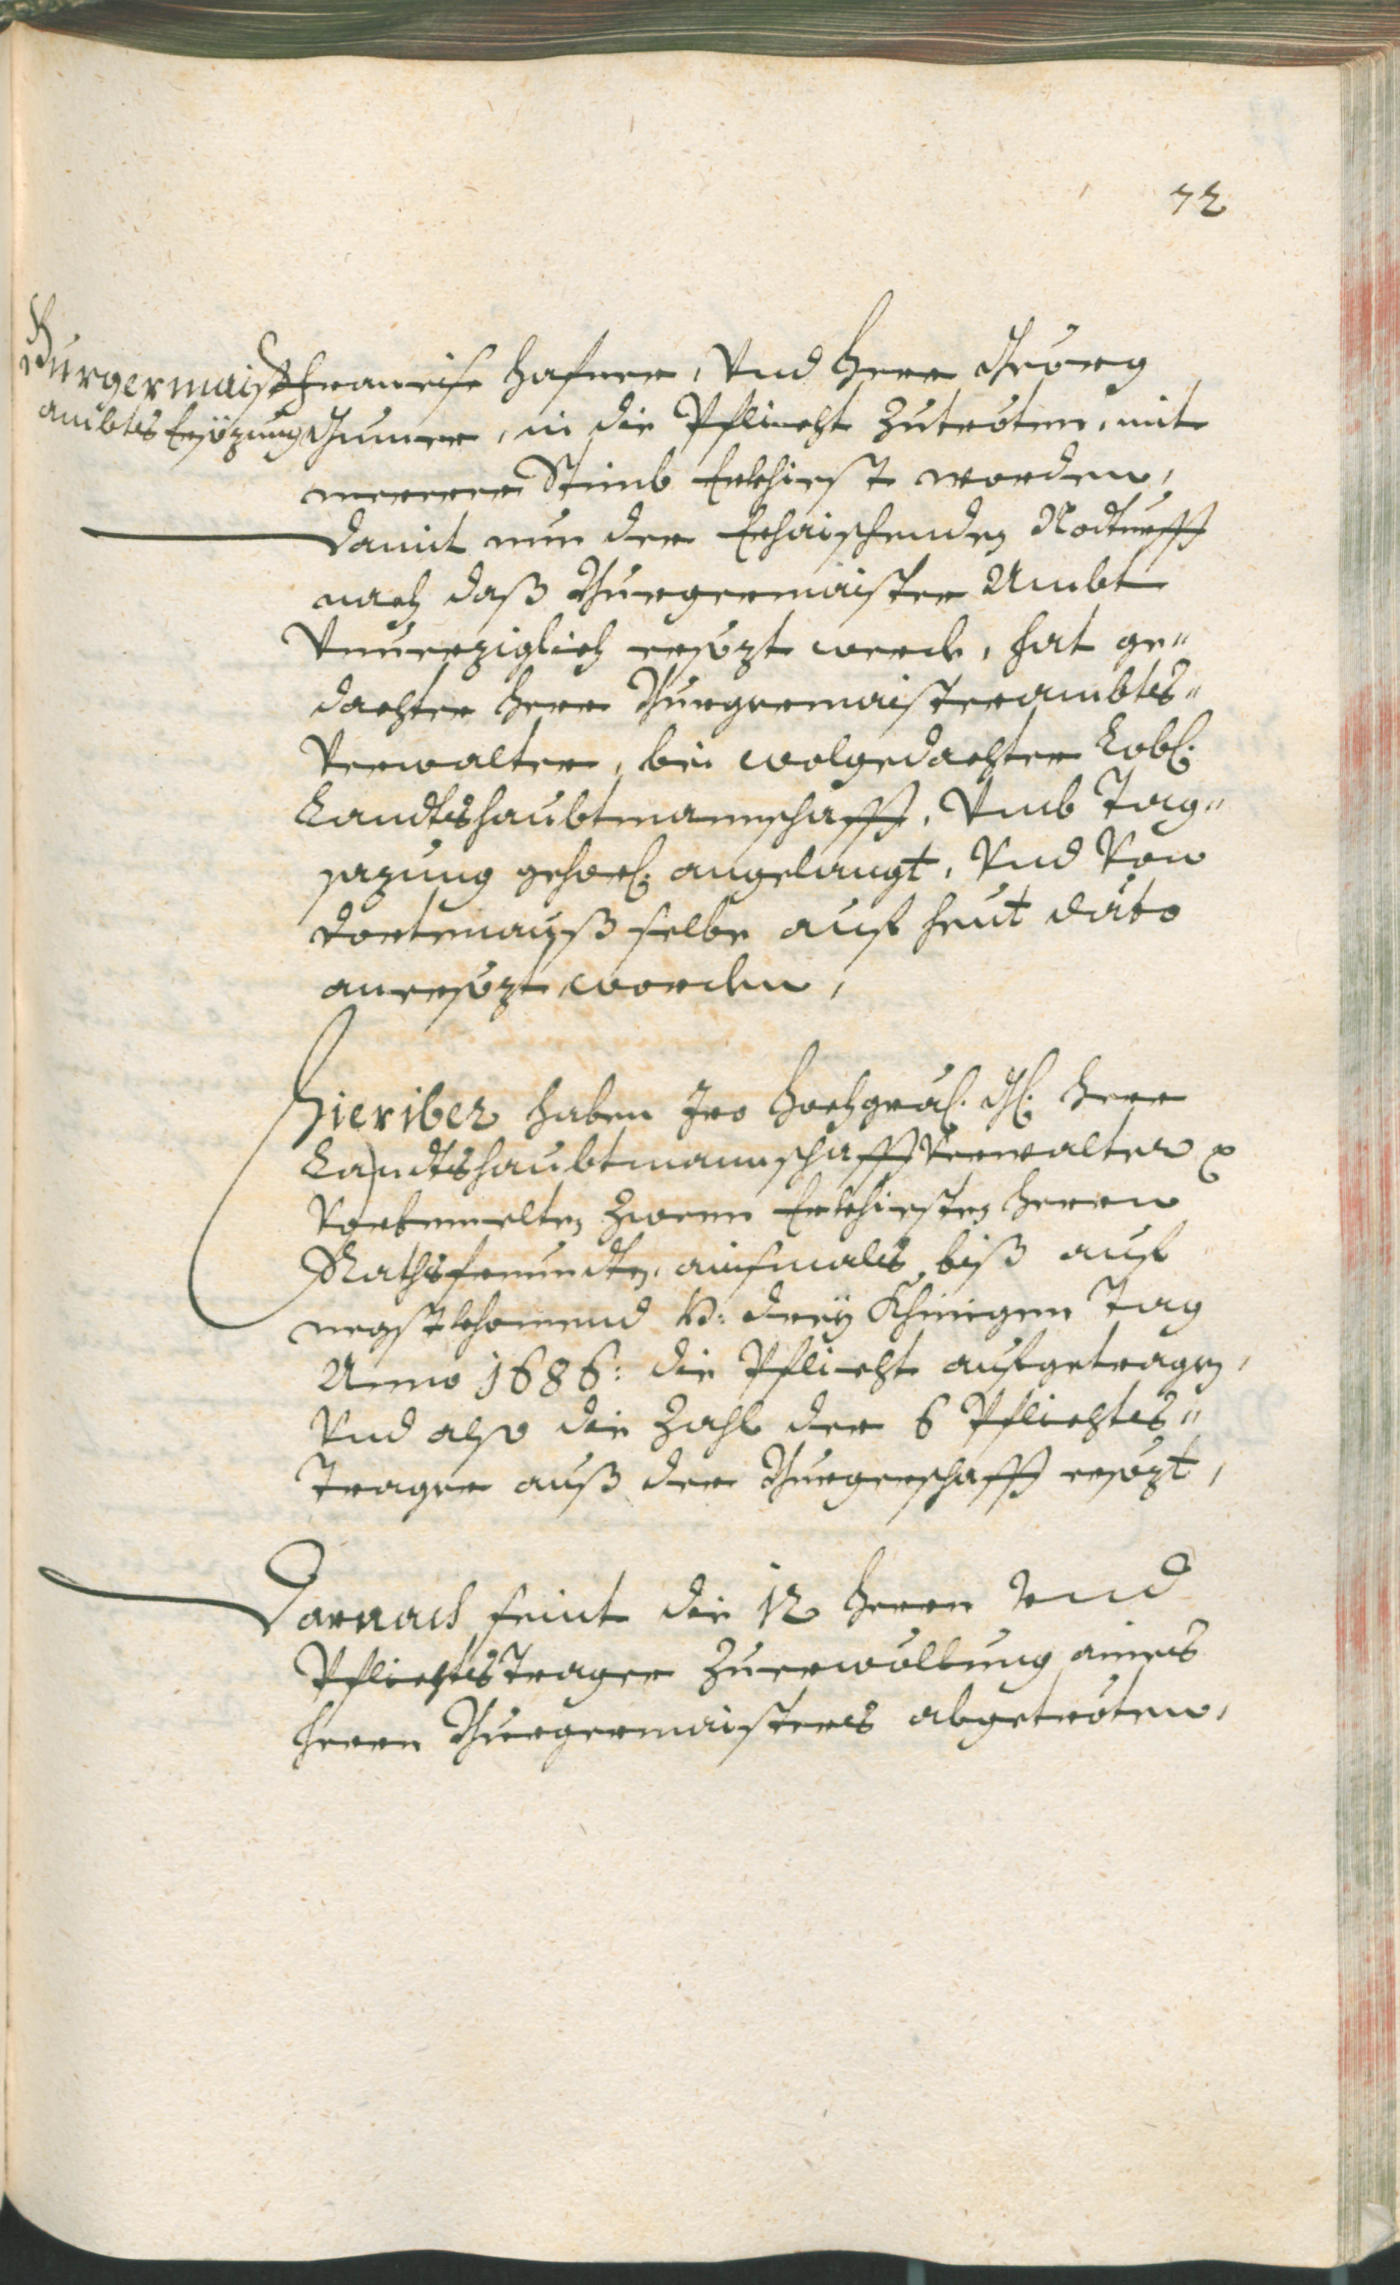 72
Burgermaister
ambts Ersözung
Francisc Hafner, Vnd Herr Georg
in die Pflicht zutröten, mit
mererer Stimb Erkhiest worden,
Damit nun der Erhaischenden Nodturfft
nach daß Burgermaister Ambt
Vnuerziglich ersözt werde, hat ge„
dachter Herr Burgermaisterambts„
Verwalter, bei wolgedachter Lobl:
Landtshaubtmannschafft, Vmb Tag„
sazung gehorl: angelangt, Vnd Von
dortenauß selbe auf heut dato
angesözt worden,
Hieriber haben Iro Hochgräfl: Gl: Herr
Landtshaubtmannschafft Verwalter
Vorbemelten Zween Erkhiesten Herrn
Rathsfreundten, ainsmals biß auf
negstkhomend H: dreÿ Khönigen Tag
Anno 1686: die Pflicht aufgetragen,
Vnd also die Zahl der 6 Pflichts„
Trager auß der Burgerschafft ersözt,
Darnach seint die 12 Herrn Vnd
Pflichts Trager zuerwöllung aines
Herrn Burgermaisters abgetröten,